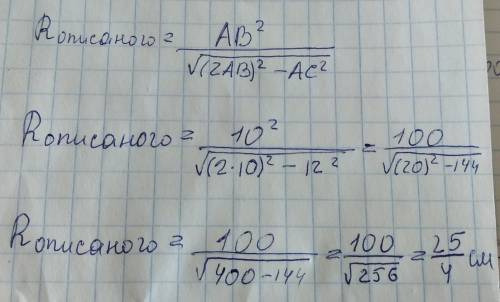 Rописаного = AB² / √((2AB)² − AC²)
Rописаного = 10² / √((2·10)² − 12²) = 100 / √((20)² − 144)
Rописаного = 100 / √(400 − 144) = 100 / √256 = 25/4 см